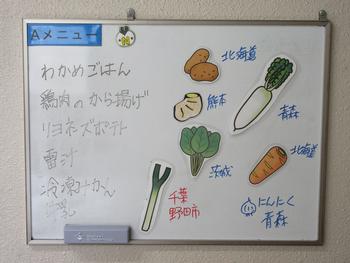 Aメニュー
わかめごはん
鶏肉のから揚げ
リヨネーズポテト
雷汁
冷凍みかん
牛乳
北海道
熊本
青森
茨城
北海道
千葉
野田市
にんにく
青森